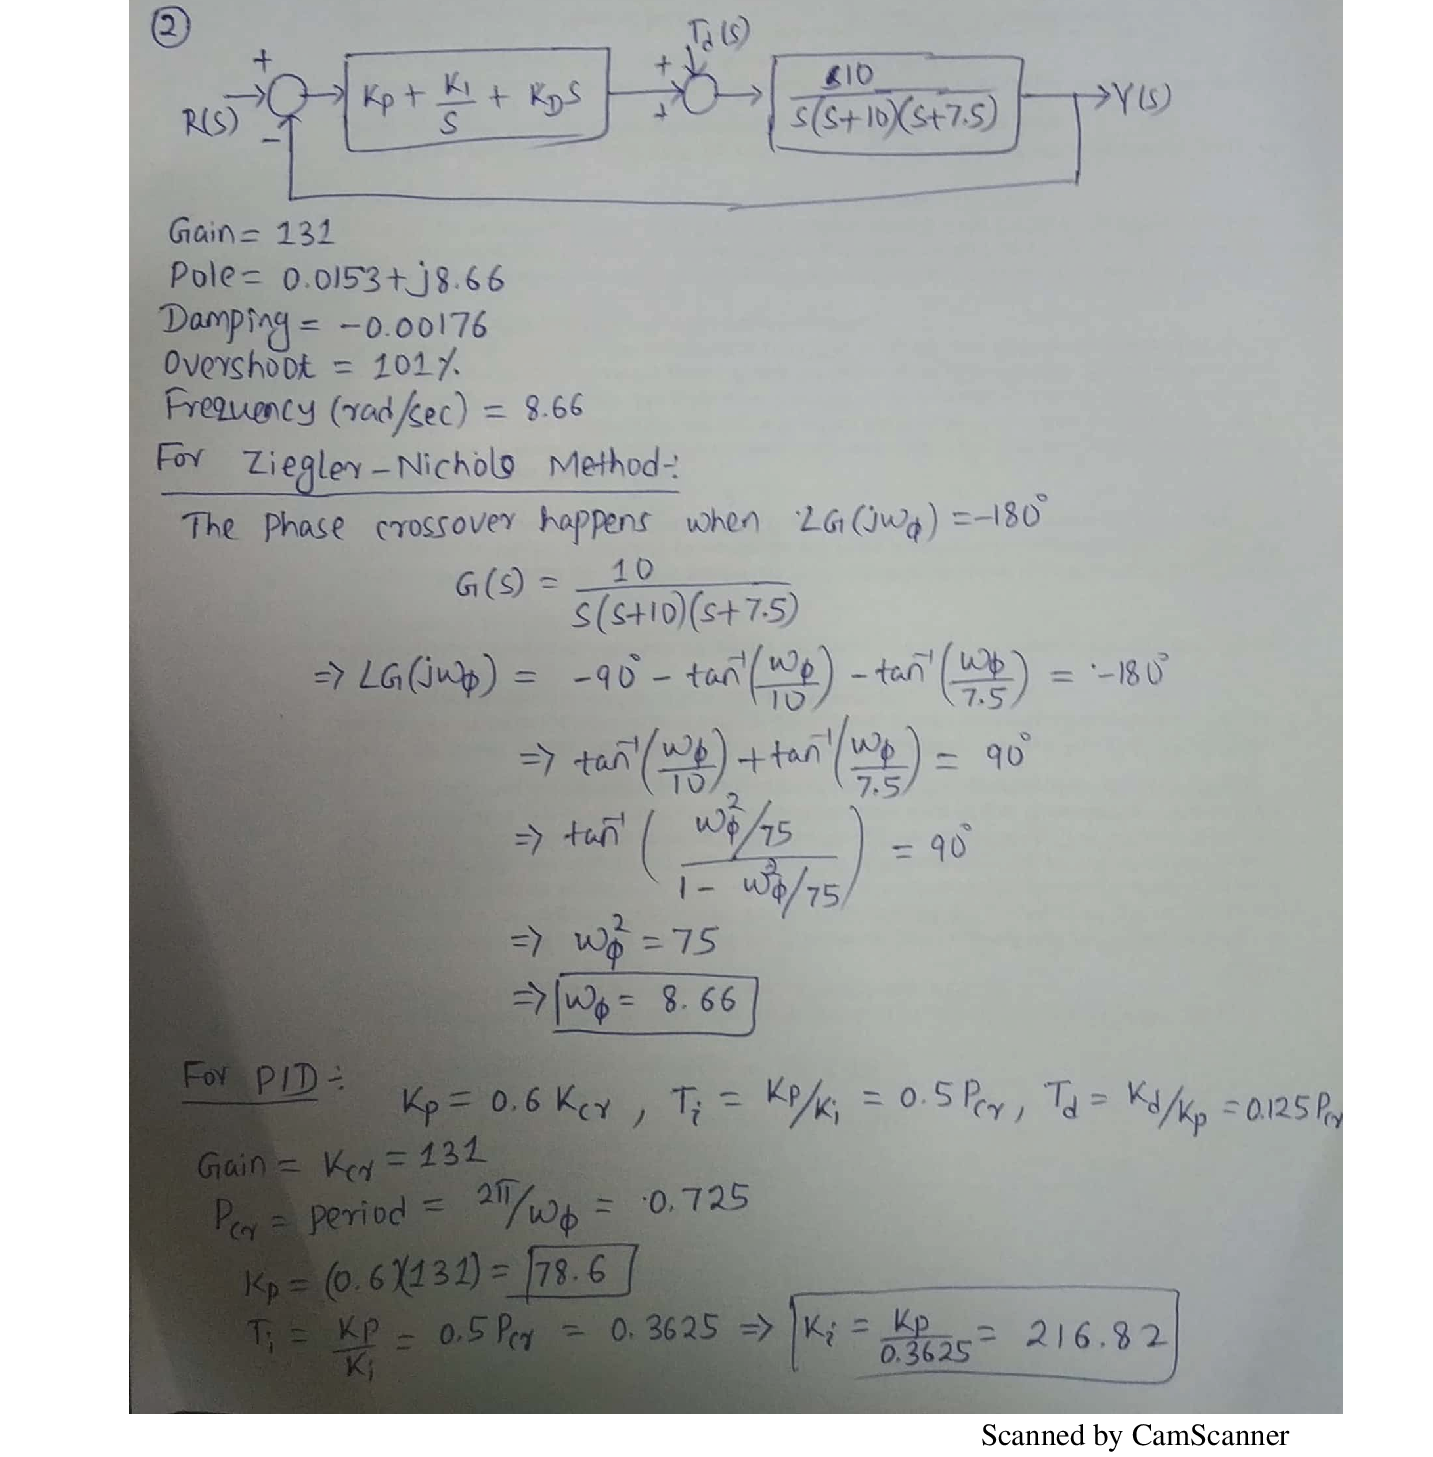 ②
R(s) + - Kp + K_I/s + K_D s + + T_d(s) 10/(s(s+10)(s+7.5)) Y(s)
Gain = 131
Pole = 0.0153+j8.66
Damping = -0.00176
Overshoot = 101%
Frequency (rad/sec) = 8.66
For Ziegler-Nichols Method:
The phase crossover happens when ∠G(jωφ) = -180°
G(s) = 10/(s(s+10)(s+7.5))
⇒ ∠G(jωφ) = -90° - tan⁻¹(ωφ/10) - tan⁻¹(ωφ/7.5) = -180°
⇒ tan⁻¹(ωφ/10) + tan⁻¹(ωφ/7.5) = 90°
⇒ tan⁻¹((ωφ²/75)/(1 - ωφ²/75)) = 90°
⇒ ωφ² = 75
⇒ ωφ = 8.66
For PID:
Kp = 0.6 Kcr, Ti = Kp/Ki = 0.5 Pcr, Td = Kd/Kp = 0.125 Pcr
Gain = Kcr = 131
Pcr = period = 2π/ωφ = 0.725
Kp = (0.6)(131) = 78.6
Ti = Kp/Ki = 0.5 Pcr = 0.3625 ⇒ Ki = Kp/0.3625 = 216.82
Scanned by CamScanner